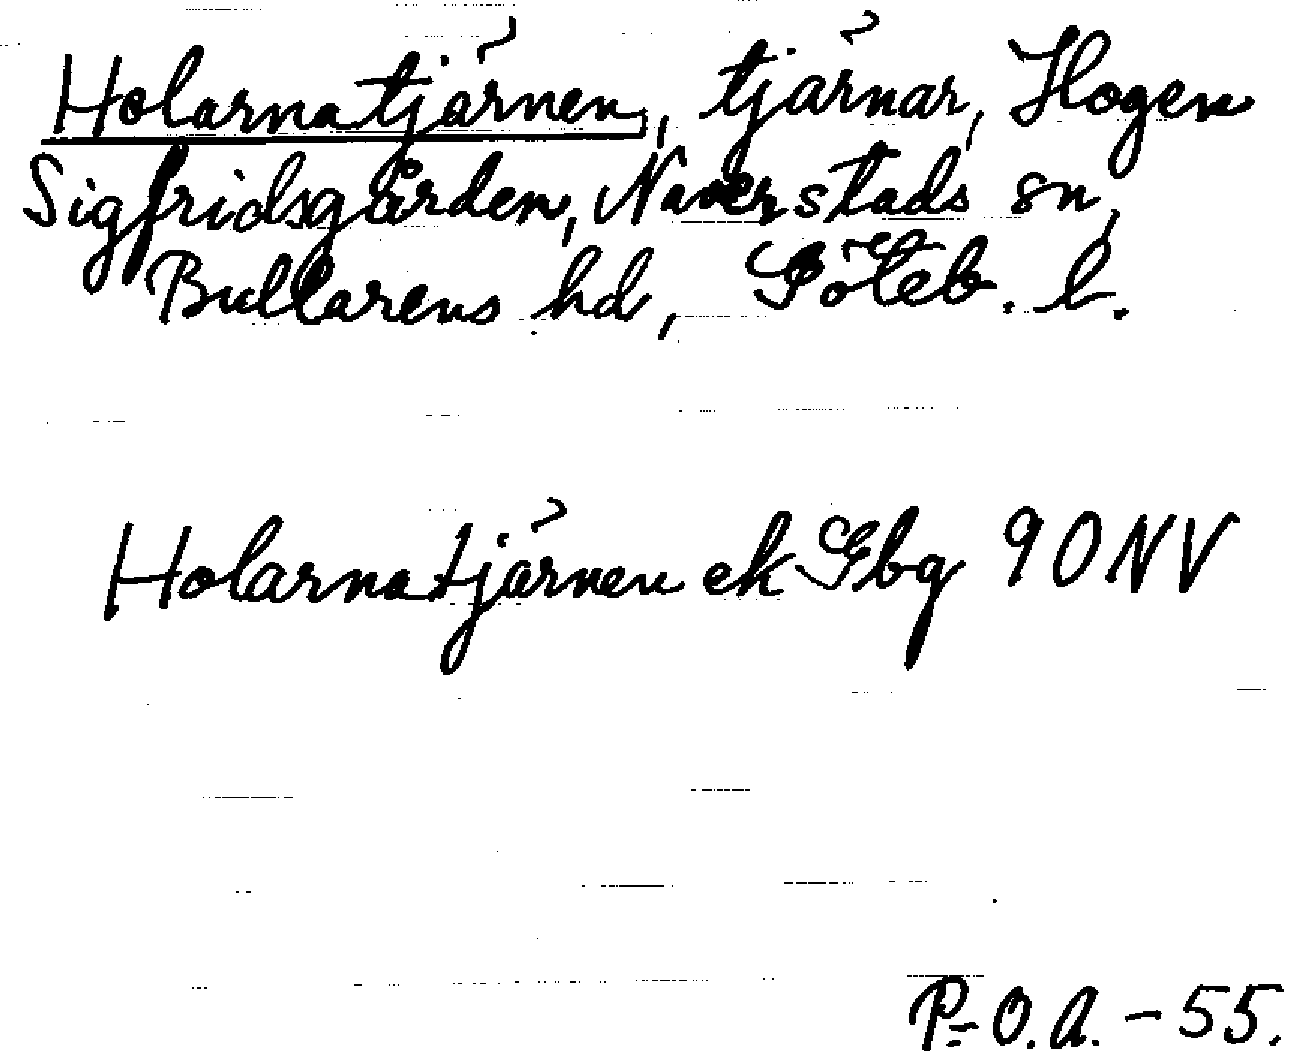 Holarnatjärnen, tjärnar, Hogen
Sigfridsgården, Naverstads sn,
Bullarens hd, Göteb. l.
Holarnatjärnen ek Gbg 90NV
P-O.A. - 55.